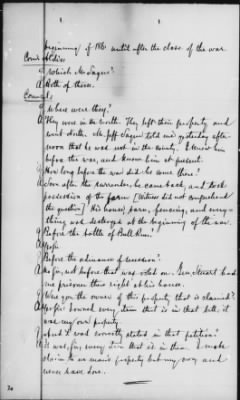 beginning of 1861 until after the close of the war.
Com'r
Q Which Mr
A Both of them.
Counsel:
Q Where were they?
A They were in the South. They left their property and
went South. Mr. Jeff told me yesterday after-
noon that he was not in the county. I knew him
before the war, and know him at present.
Q How long before the war did he come there?
A Soon after the surrender, he came back, and took
possession of the farm [Witness did not comprehend
the question] His house, farm, fencing, and every-
thing was destroyed at the beginning of the war.
Q Before the battle of Bull Run?
A
Q Before the ordinance of secession?
A No Sir, not before that was voted on. Gen. Stewart had
me prisoner there right at his house.
Q Were you the owner of this property that is claimed?
A Yes Sir: I owned every item that is in that bill, it
was my own property
Q And it was correctly stated in that petition?
A It was, Sir, every item that is in there. I make
claim to no man's property but my own and
never have done.